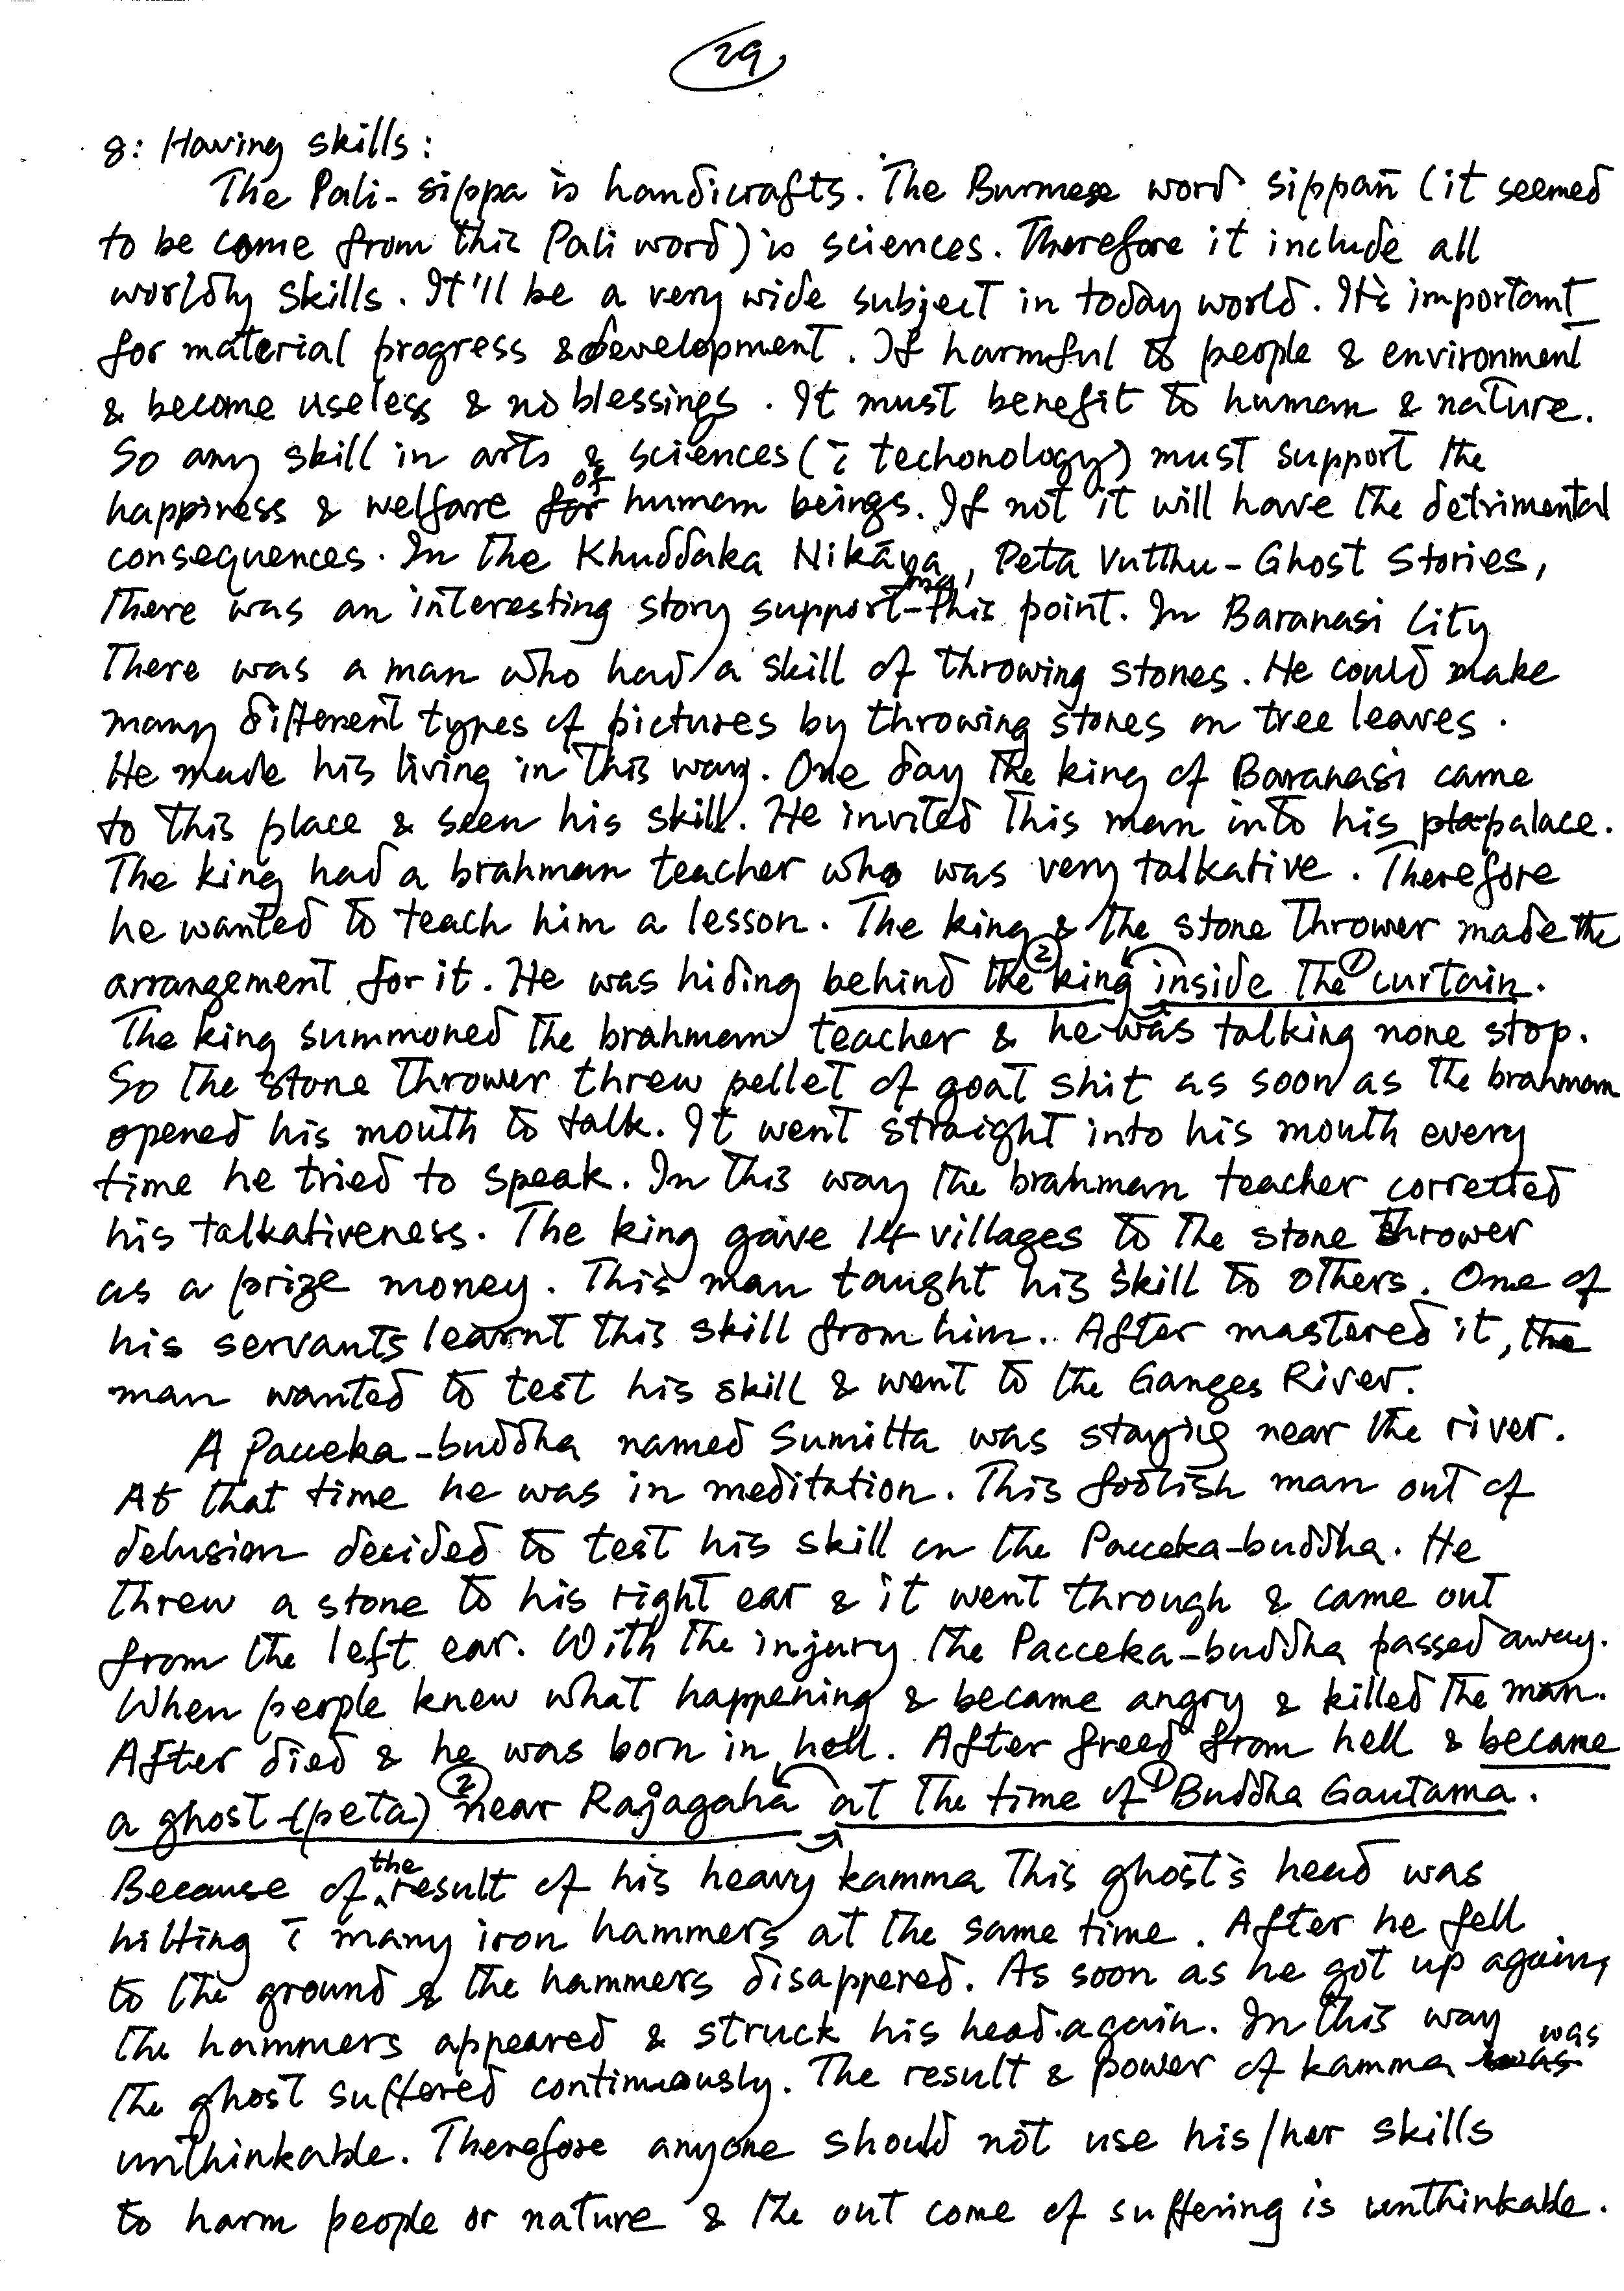 29
8: Having skills:
The Pali- sippa is handicrafts. The Burmese word sippañ (it seemed
to be come from this Pali word) is sciences. Therefore it include all
worldly skills. It'll be a very wide subject in today world. It's important
for material progress & development. If harmful to people & environment
& become useless & no blessings. It must benefit to human & nature.
So any skill in arts & sciences (c̄ techonology) must support the
happiness & welfare of human beings. If not it will have the detrimental
consequences. In the Khuddaka Nikāya, Peta Vutthu - Ghost Stories,
there was an interesting story support-ing this point. In Baranasi City
There was a man who had a skill of throwing stones. He could make
many different types of pictures by throwing stones on tree leaves.
He made his living in this way. One day the king of Baranasi came
to this place & seen his skill. He invited this man into his palace.
The king had a brahman teacher who was very talkative. Therefore
he wanted to teach him a lesson. The king & the stone thrower made the
arrangement for it. He was hiding behind the ② king inside the ① curtain.
The king summoned the brahman teacher & he was talking none stop.
So the stone thrower threw pellet of goat shit as soon as the brahman
opened his mouth to talk. It went straight into his mouth every
time he tried to speak. In this way the brahman teacher corretted
his talkativeness. The king gave 14 villages to the stone thrower
as a prize money. This man taught his skill to others. One of
his servants learnt this skill from him. After mastered it, the
man wanted to test his skill & went to the Ganges River.
A Pacceka-buddha named Sumitta was staying near the river.
At that time he was in meditation. This foolish man out of
delusion decided to test his skill on the Pacceka-buddha. He
threw a stone to his right ear & it went through & came out
from the left ear. With the injury the Pacceka-buddha passed away.
When people knew what happening & became angry & killed the man.
After died & he was born in hell. After freed from hell & became
a ghost (peta) ② near Rajagaha at the time of ① Buddha Gautama.
Because of the result of his heavy kamma this ghost's head was
hitting c̄ many iron hammers at the same time. After he fell
to the ground & the hammers disappered. As soon as he got up again,
the hammers appeared & struck his head again. In this way
the ghost suffered continuously. The result & power of kamma was
unthinkable. Therefore anyone should not use his/her skills
to harm people or nature & the out come of suffering is unthinkable.